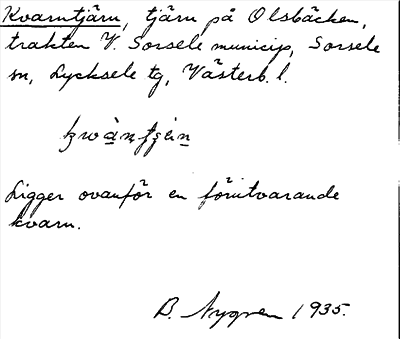 Kvarntjärn, tjärn på Olsbäcken,
trakten V. Sorsele municip, Sorsele
sn, Lycksele tg, Västerb. l.
Ligger ovanför en förutvarande
kvarn.
B. Nygren 1935.